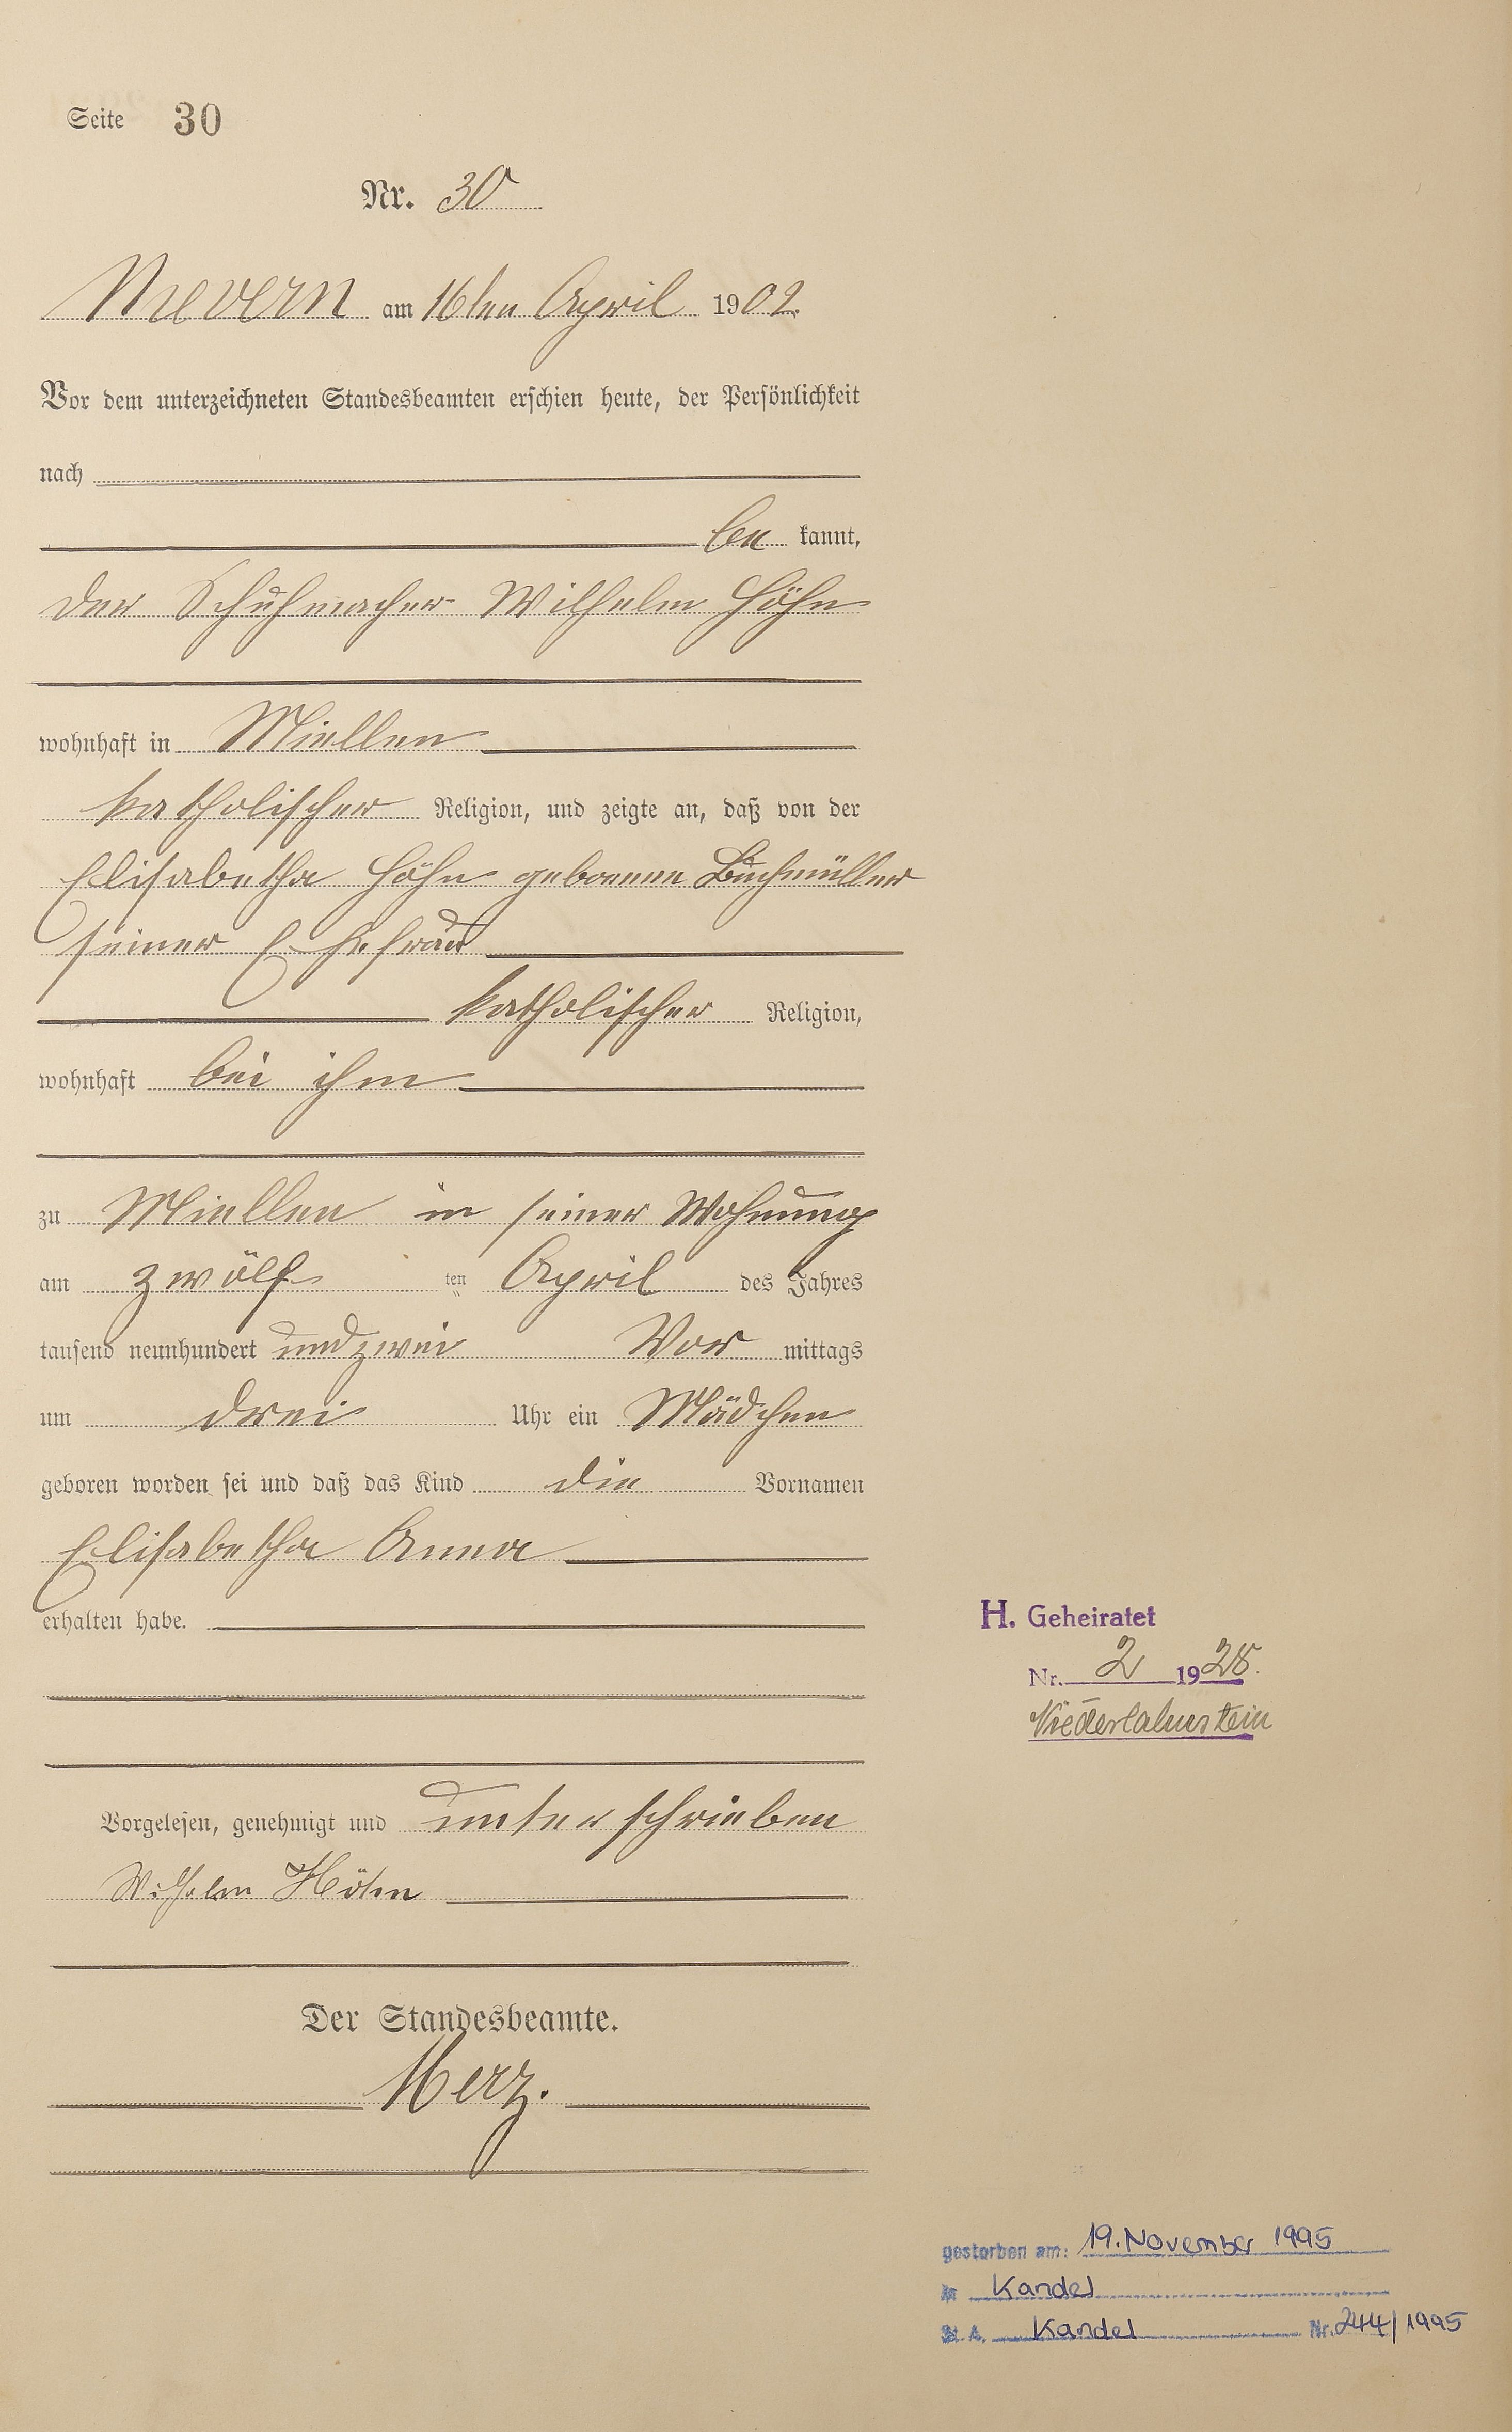 Seite 30
Nr. 30
Nievern am 16ten April 1902.
Vor dem unterzeichneten Standesbeamten erschien heute, der Persönlichkeit
nach
be kannt,
der Schuhmacher Wilhelm Höhn
wohnhaft in Miellen
katholischer Religion, und zeigte an, daß von der
Elisabetha Höhn geborenen Buchmüller
seiner Ehefrau
katholischer Religion,
wohnhaft bei ihm
zu Miellen in seiner Wohnung
am zwölf ten April des Jahres
tausend neunhundert und zwei Vor mittags
um drei Uhr ein Mädchen
geboren worden sei und daß das Kind die Vornamen
Elisabetha Anna
erhalten habe.
Vorgelesen, genehmigt und unterschrieben
Wilhelm Höhn
Der Standesbeamte.
Merz.
H. Geheiratet
Nr. 2 1928.
Niederlahnstein
gestorben am: 19. November 1995
in Kandel
St. A. Kandel Nr. 244/1995